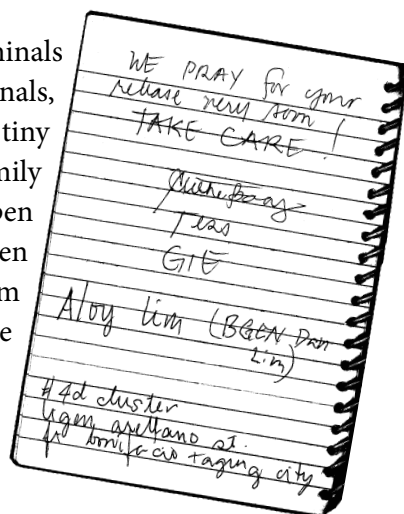 ninals
nals,
tiny
mily
pen
en
m
e
WE PRAY for your
release very soon!
TAKE CARE.
Tess
GIE
Aloy Lim (BGEN Dan
Lim)
# 4d cluster
arellano st.
ft bonifacio taguig city